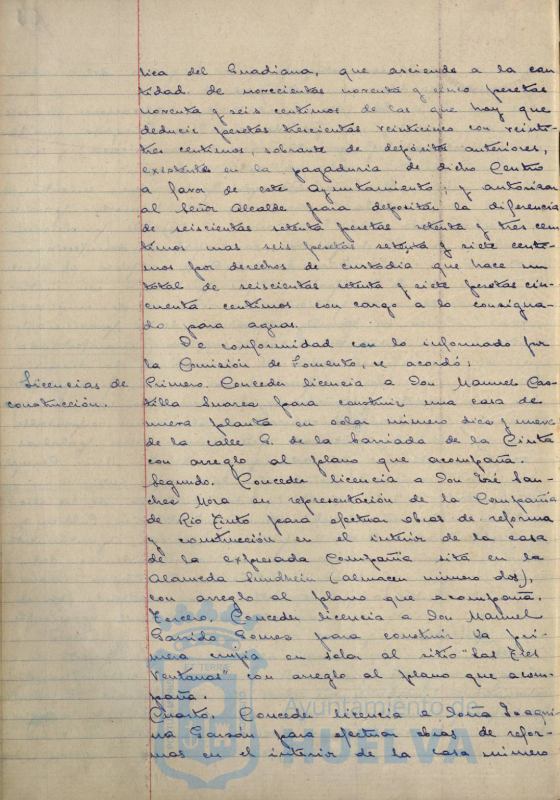 lica del Guadiana, que asciende a la can-
tidad de novecientas noventa y cinco pesetas
noventa y seis centimos de las que hay que
deducir pesetas trescientas veinticinco con veinte-
tres centimos, sobrante de depósitos anteriores,
existentes en la pagaduria de dicho Centro
a favor de este Ayuntamiento; y autorizar
al Señor Alcalde para depositar la diferencia
de seiscientas setenta pesetas setenta y tres cen
timos mas seis pesetas setenta y siete centi-
mos por derechos de custodia que hace un
total de seiscientas setenta y siete pesetas cin-
cuenta centimos con cargo a lo consigna-
do para aguas.
De conformidad con lo informado por
la Comisión de Fomento, se acordó:
Licencias de
construcción.
Primero. Conceder licencia a Don Manuel Cas-
tilla Suarez para construir una casa de
nueva planta en solar número diez y nueve
de la calle G. de la barriada de la Cinta
con arreglo al plano que acompaña.
Segundo. Conceder licencia a Don José San-
chez Mora en representación de la Compañia
de Rio Tinto para efectuar obras de reforma
y construcción en el interior de la casa
de la expresada Compañia sita en la
Alameda Sundhein (almacen número dos),
con arreglo al plano que acompaña.
Tercero. Conceder licencia a Don Manuel
Garrido Gomez para construir la pri-
mera crujia en solar al sitio "Las Tres
Ventanas" con arreglo al plano que acom-
paña.
Cuarto. Conceder licencia a Doña Joaqui
na Garzón para efectuar obras de refor-
mas en el interior de la casa número
Ayuntamiento de
HUELVA